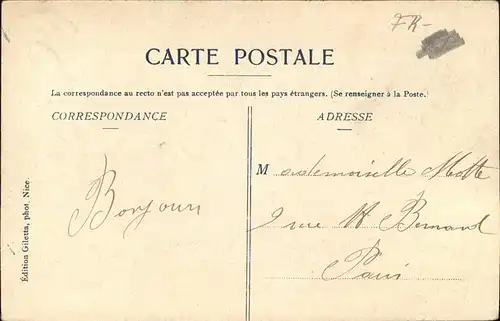 FR-
CARTE POSTALE
La correspondance au recto n'est pas acceptée par tous les pays étrangers. (Se renseigner à la Poste.)
CORRESPONDANCE
Bonjour
ADRESSE
Mademoiselle Motte
rue St Bernard
Paris
Édition Giletta, phot. Nice.